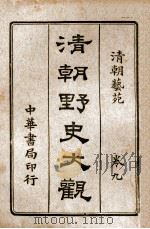 清朝藝苑
卷九
清朝野史大觀
中華書局印行
www.toutu001.com